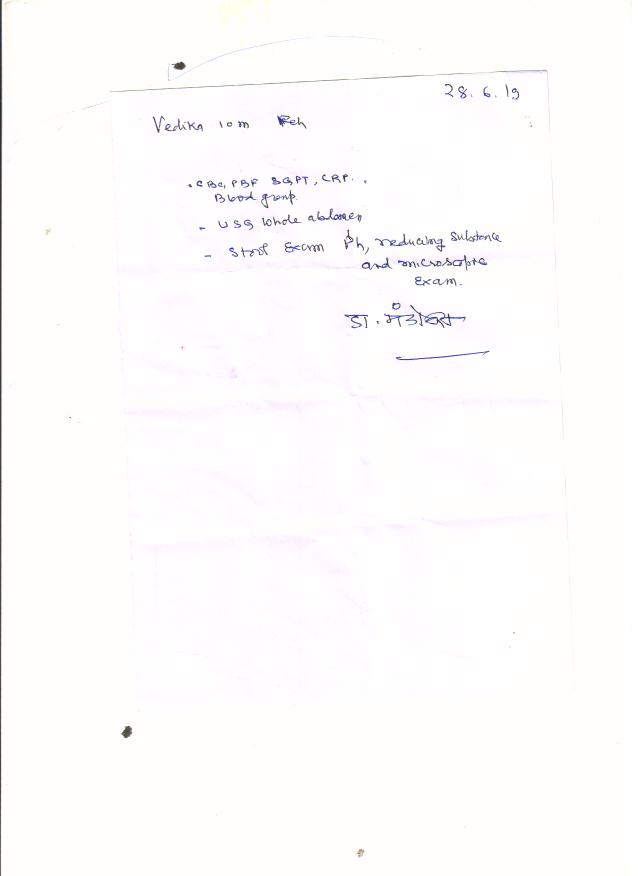 28.6.19
Vedika 10m Feh
. CBC, PBF SGPT, CRP. .
Blood group.
- USG Whole abdomen
- Stool Exam Ph, reducing Substance
and microscopic
Exam.
डा.